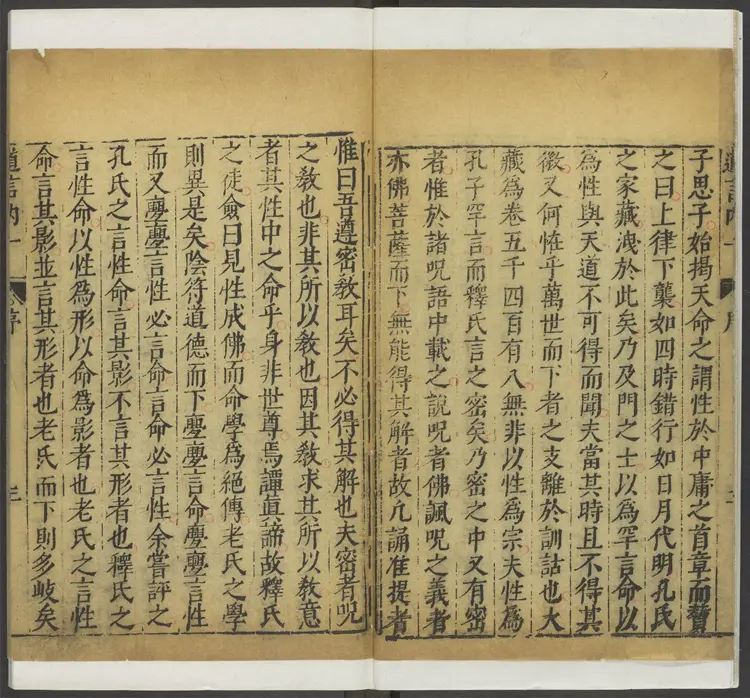 子思子始揭天命之謂性於中庸之首章而贊
之曰上律下襲如四時錯行如日月代明孔氏
之家藏洩於此矣乃及門之士以為罕言命以
為性與天道不可得而聞夫當其時且不得其
徵又何恠乎萬世而下者之支離於訓詁也大
藏為卷五千四百有八無非以性為宗夫性為
孔子罕言而釋氏言之密矣乃密之中又有密
者惟於諸呪語中載之說呪者佛諷呪之義者
亦佛菩薩而下無能得其解者故凢誦准提者
惟曰吾遵密敎耳矣不必得其解也夫密者呪
之敎也非其所以敎也因其敎求其所以敎意
者其性中之命乎身非世尊焉譚眞諦故釋氏
之徒僉曰見性成佛而命學為絕傳老氏之學
則異是矣陰符道德而下亹亹言命亹亹言性
而又亹亹言性必言命言命必言性余嘗評之
孔氏之言性命言其影不言其形者也釋氏之
言性命以性為形以命為影者也老氏之言性
命言其影並言其形者也老氏而下則多岐矣
道言內一
序
三